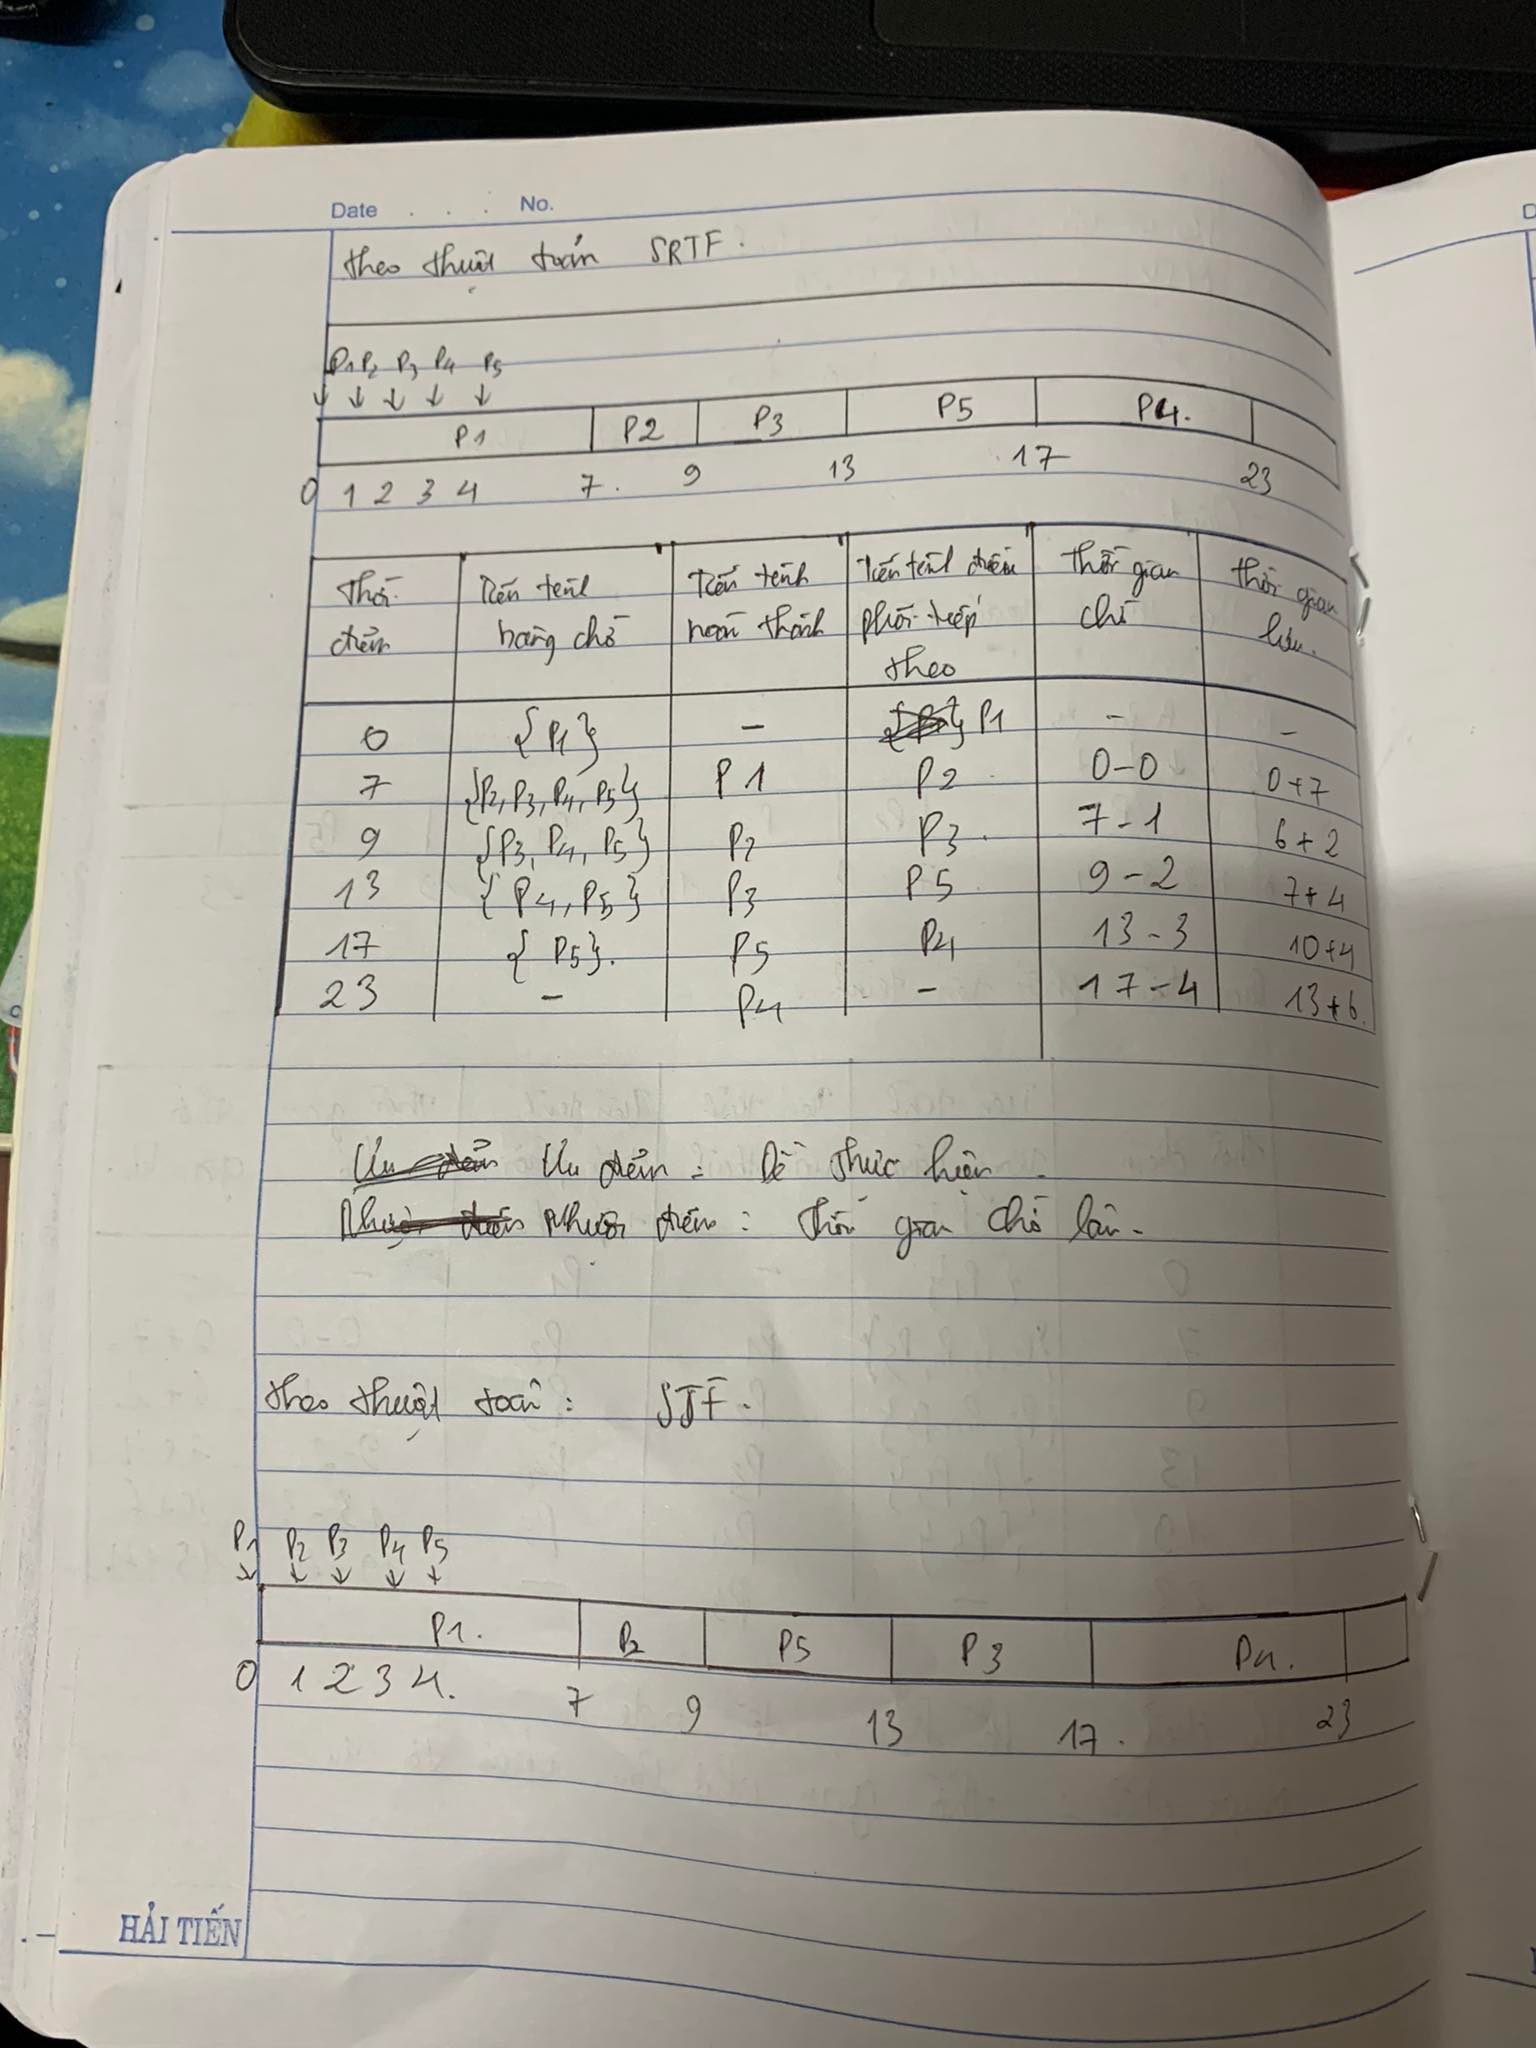 Date . . . No.
Theo thuật toán SRTF.
P1 P2 P3 P4 P5
P1 P2 P3 P5 P4.
0 1 2 3 4 7. 9 13 17 23
Thời điểm
Tiến trình hàng chờ
Tiến trình hoàn thành
Tiến trình điều phối tiếp theo
Thời gian chờ
Thời gian lưu.
0 {P1} - P1 - -
7 {P2, P3, P4, P5} P1 P2 0-0 0+7
9 {P3, P4, P5} P2 P3 7-1 6+2
13 {P4, P5} P3 P5 9-2 7+4
17 {P5}. P5 P4 13-3 10+4
23 - P4 - 17-4 13+6.
Ưu điểm Ưu điểm : Dễ thực hiện.
Nhược điểm Nhược điểm : Thời gian chờ lâu.
Theo thuật toán : SJF.
P1 P2 P3 P4 P5
P1. P2 P5 P3 P4.
0 1 2 3 4. 7 9 13 17. 23
HẢI TIẾN